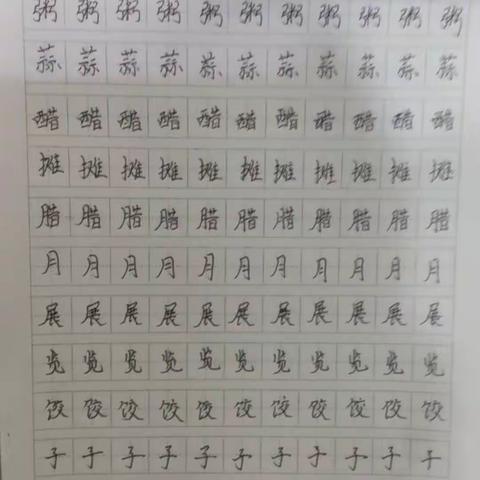 粥粥粥粥粥粥粥粥粥粥粥
蒜蒜蒜蒜蒜蒜蒜蒜蒜蒜蒜
醋醋醋醋醋醋醋醋醋醋醋
摊摊摊摊摊摊摊摊摊摊摊
腊腊腊腊腊腊腊腊腊腊腊
月月月月月月月月月月月
展展展展展展展展展展展
览览览览览览览览览览览
饺饺饺饺饺饺饺饺饺饺饺
子子子子子子子子子子子